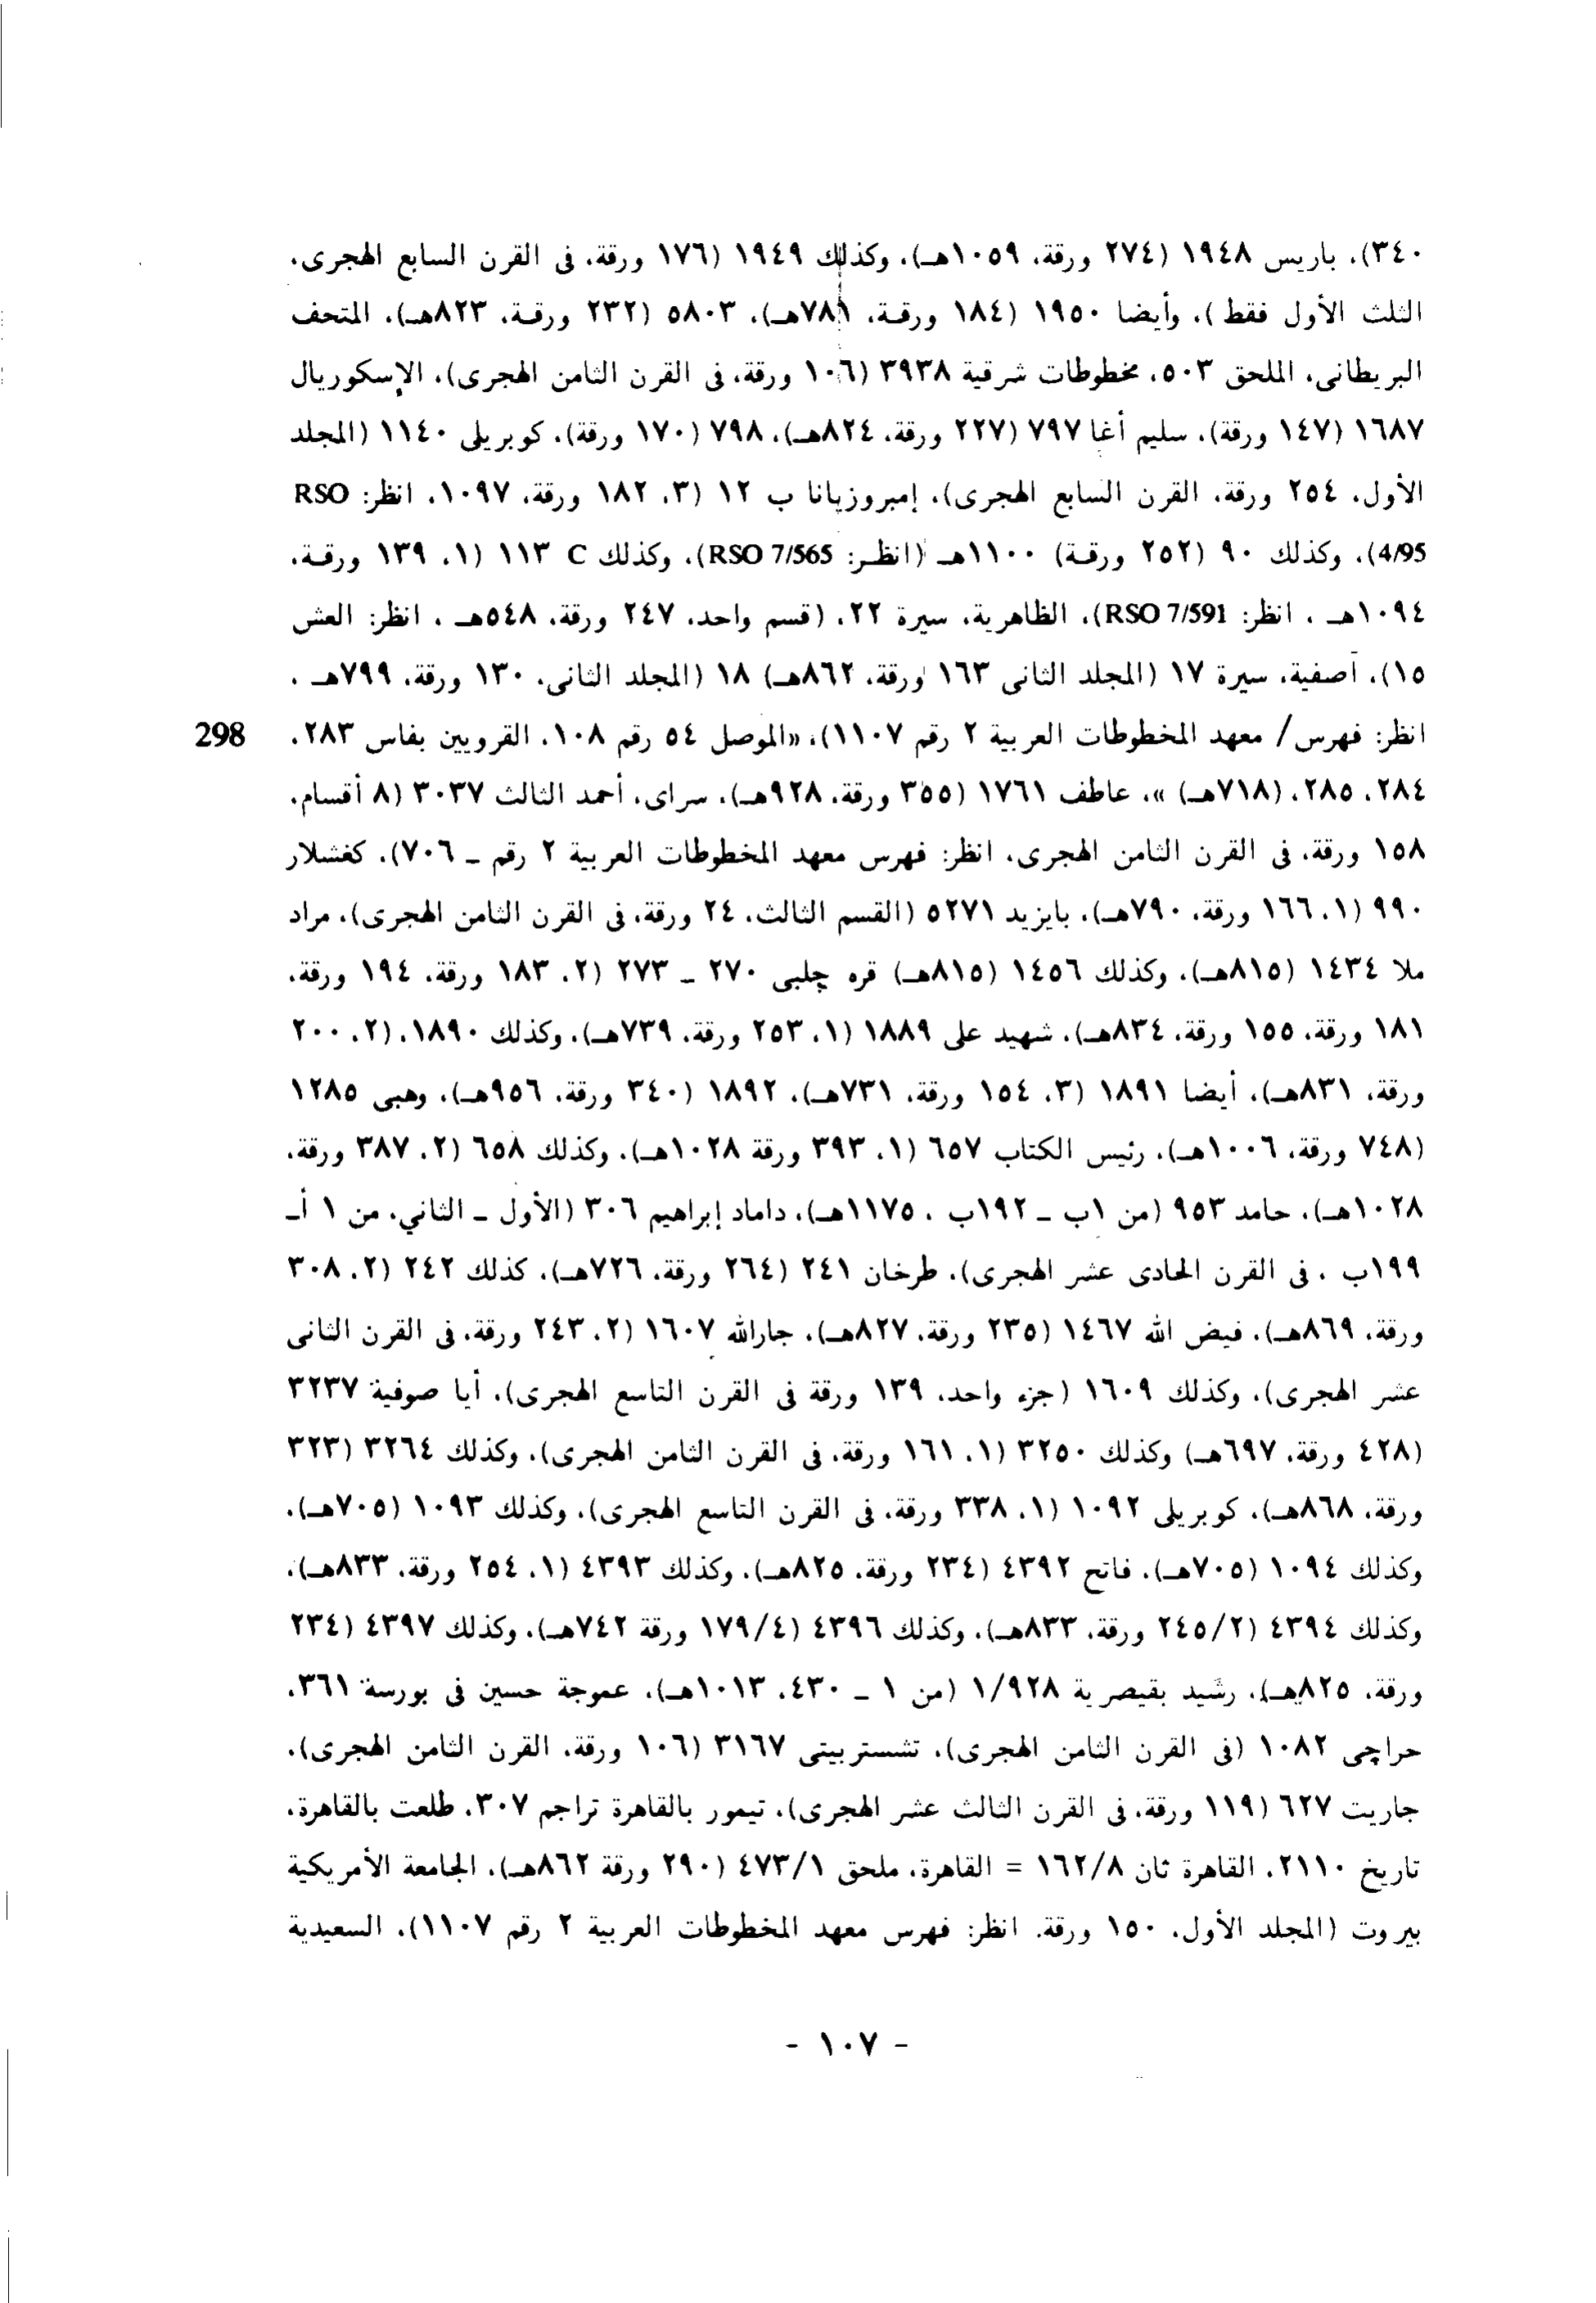 ٣٤٠)، باريس ١٩٤٨ (٢٧٤ ورقة، ١٠٥٩هـ)، وكذلك ١٩٤٩ (١٧٦ ورقة، فى القرن السابع الهجرى،
الثلث الأول فقط)، وأيضا ١٩٥٠ (١٨٤ ورقة، ٧٨١هـ)، ٥٨٠٣ (٢٣٢ ورقة، ٨٢٣هـ)، المتحف
البريطانى، الملحق ٥٠٣، مخطوطات شرقية ٣٩٣٨ (١٠٦ ورقة، فى القرن الثامن الهجرى)، الإسكوريال
١٦٨٧ (١٤٧ ورقة)، سليم أغا ٧٩٧ (٢٢٧ ورقة، ٨٢٤هـ)، ٧٩٨ (١٧٠ ورقة)، كوبريلى ١١٤٠ (المجلد
الأول، ٢٥٤ ورقة، القرن السابع الهجرى)، إمبروزيانا ب ١٢ (٣، ١٨٢ ورقة، ١٠٩٧، انظر: RSO
4/95)، وكذلك ٩٠ (٢٥٢ ورقة) ١١٠٠هـ (انظر: RSO 7/565)، وكذلك C ١١٣ (١، ١٣٩ ورقة،
١٠٩٤هـ ، انظر: RSO 7/591)، الظاهرية، سيرة ٢٢، (قسم واحد، ٢٤٧ ورقة، ٥٤٨هـ ، انظر: العش
١٥)، آصفية، سيرة ١٧ (المجلد الثانى ١٦٣ ورقة، ٨٦٢هـ) ١٨ (المجلد الثانى، ١٣٠ ورقة، ٧٩٩هـ ،
انظر: فهرس/ معهد المخطوطات العربية ٢ رقم ١١٠٧)، «الموصل ٥٤ رقم ١٠٨، القرويين بفاس ٢٨٣، 298
٢٨٤، ٢٨٥، (٧١٨هـ) »، عاطف ١٧٦١ (٣٥٥ ورقة، ٩٢٨هـ)، سراى، أحمد الثالث ٣٠٣٧ (٨ أقسام،
١٥٨ ورقة، فى القرن الثامن الهجرى، انظر: فهرس معهد المخطوطات العربية ٢ رقم ـ ٧٠٦)، كغشلار
٩٩٠ (١، ١٦٦ ورقة، ٧٩٠هـ)، بايزيد ٥٢٧١ (القسم الثالث، ٢٤ ورقة، فى القرن الثامن الهجرى)، مراد
ملا ١٤٣٤ (٨١٥هـ)، وكذلك ١٤٥٦ (٨١٥هـ) قره چلبى ٢٧٠ ـ ٢٧٣ (٢، ١٨٣ ورقة، ١٩٤ ورقة،
١٨١ ورقة، ١٥٥ ورقة، ٨٣٤هـ)، شهيد على ١٨٨٩ (١، ٢٥٣ ورقة، ٧٣٩هـ)، وكذلك ١٨٩٠، (٢، ٢٠٠
ورقة، ٨٣١هـ)، أيضا ١٨٩١ (٣، ١٥٤ ورقة، ٧٣١هـ)، ١٨٩٢ (٣٤٠ ورقة، ٩٥٦هـ)، وهبى ١٢٨٥
(٧٤٨ ورقة، ١٠٠٦هـ)، رئيس الكتاب ٦٥٧ (١، ٣٩٣ ورقة ١٠٢٨هـ)، وكذلك ٦٥٨ (٢، ٣٨٧ ورقة،
١٠٢٨هـ)، حامد ٩٥٣ (من ١ب ـ ١٩٢ب ، ١١٧٥هـ)، داماد إبراهيم ٣٠٦ (الأول ـ الثاني، من ١ أـ
١٩٩ب ، فى القرن الحادى عشر الهجرى)، طرخان ٢٤١ (٢٦٤ ورقة، ٧٢٦هـ)، كذلك ٢٤٢ (٢، ٣٠٨
ورقة، ٨٦٩هـ)، فيض الله ١٤٦٧ (٢٣٥ ورقة، ٨٢٧هـ)، جارالله ١٦٠٧ (٢، ٢٤٣ ورقة، فى القرن الثانى
عشر الهجرى)، وكذلك ١٦٠٩ (جزء واحد، ١٣٩ ورقة فى القرن التاسع الهجرى)، أيا صوفية ٣٢٣٧
(٤٢٨ ورقة، ٦٩٧هـ) وكذلك ٣٢٥٠ (١، ١٦١ ورقة، فى القرن الثامن الهجرى)، وكذلك ٣٢٦٤ (٣٢٣
ورقة، ٨٦٨هـ)، كوبريلى ١٠٩٢ (١، ٣٣٨ ورقة، فى القرن التاسع الهجرى)، وكذلك ١٠٩٣ (٧٠٥هـ)،
وكذلك ١٠٩٤ (٧٠٥هـ)، فاتح ٤٣٩٢ (٢٣٤ ورقة، ٨٢٥هـ)، وكذلك ٤٣٩٣ (١، ٢٥٤ ورقة، ٨٣٣هـ)،
وكذلك ٤٣٩٤ (٢٤٥/٢ ورقة، ٨٣٣هـ)، وكذلك ٤٣٩٦ (١٧٩/٤ ورقة ٧٤٢هـ)، وكذلك ٤٣٩٧ (٢٣٤
ورقة، ٨٢٥هـ)، رشيد بقيصرية ١/٩٢٨ (من ١ ـ ٤٣٠، ١٠١٣هـ)، عموجة حسين فى بورسة ٣٦١،
حراچى ١٠٨٢ (فى القرن الثامن الهجرى)، تشستربيتى ٣١٦٧ (١٠٦ ورقة، القرن الثامن الهجرى)،
جاريت ٦٢٧ (١١٩ ورقة، فى القرن الثالث عشر الهجرى)، تيمور بالقاهرة تراجم ٣٠٧، طلعت بالقاهرة،
تاريخ ٢١١٠، القاهرة ثان ١٦٢/٨ = القاهرة، ملحق ٤٧٣/١ (٢٩٠ ورقة ٨٦٢هـ)، الجامعة الأمريكية
بيروت (المجلد الأول، ١٥٠ ورقة. انظر: فهرس معهد المخطوطات العربية ٢ رقم ١١٠٧)، السعيدية
- ١٠٧ -